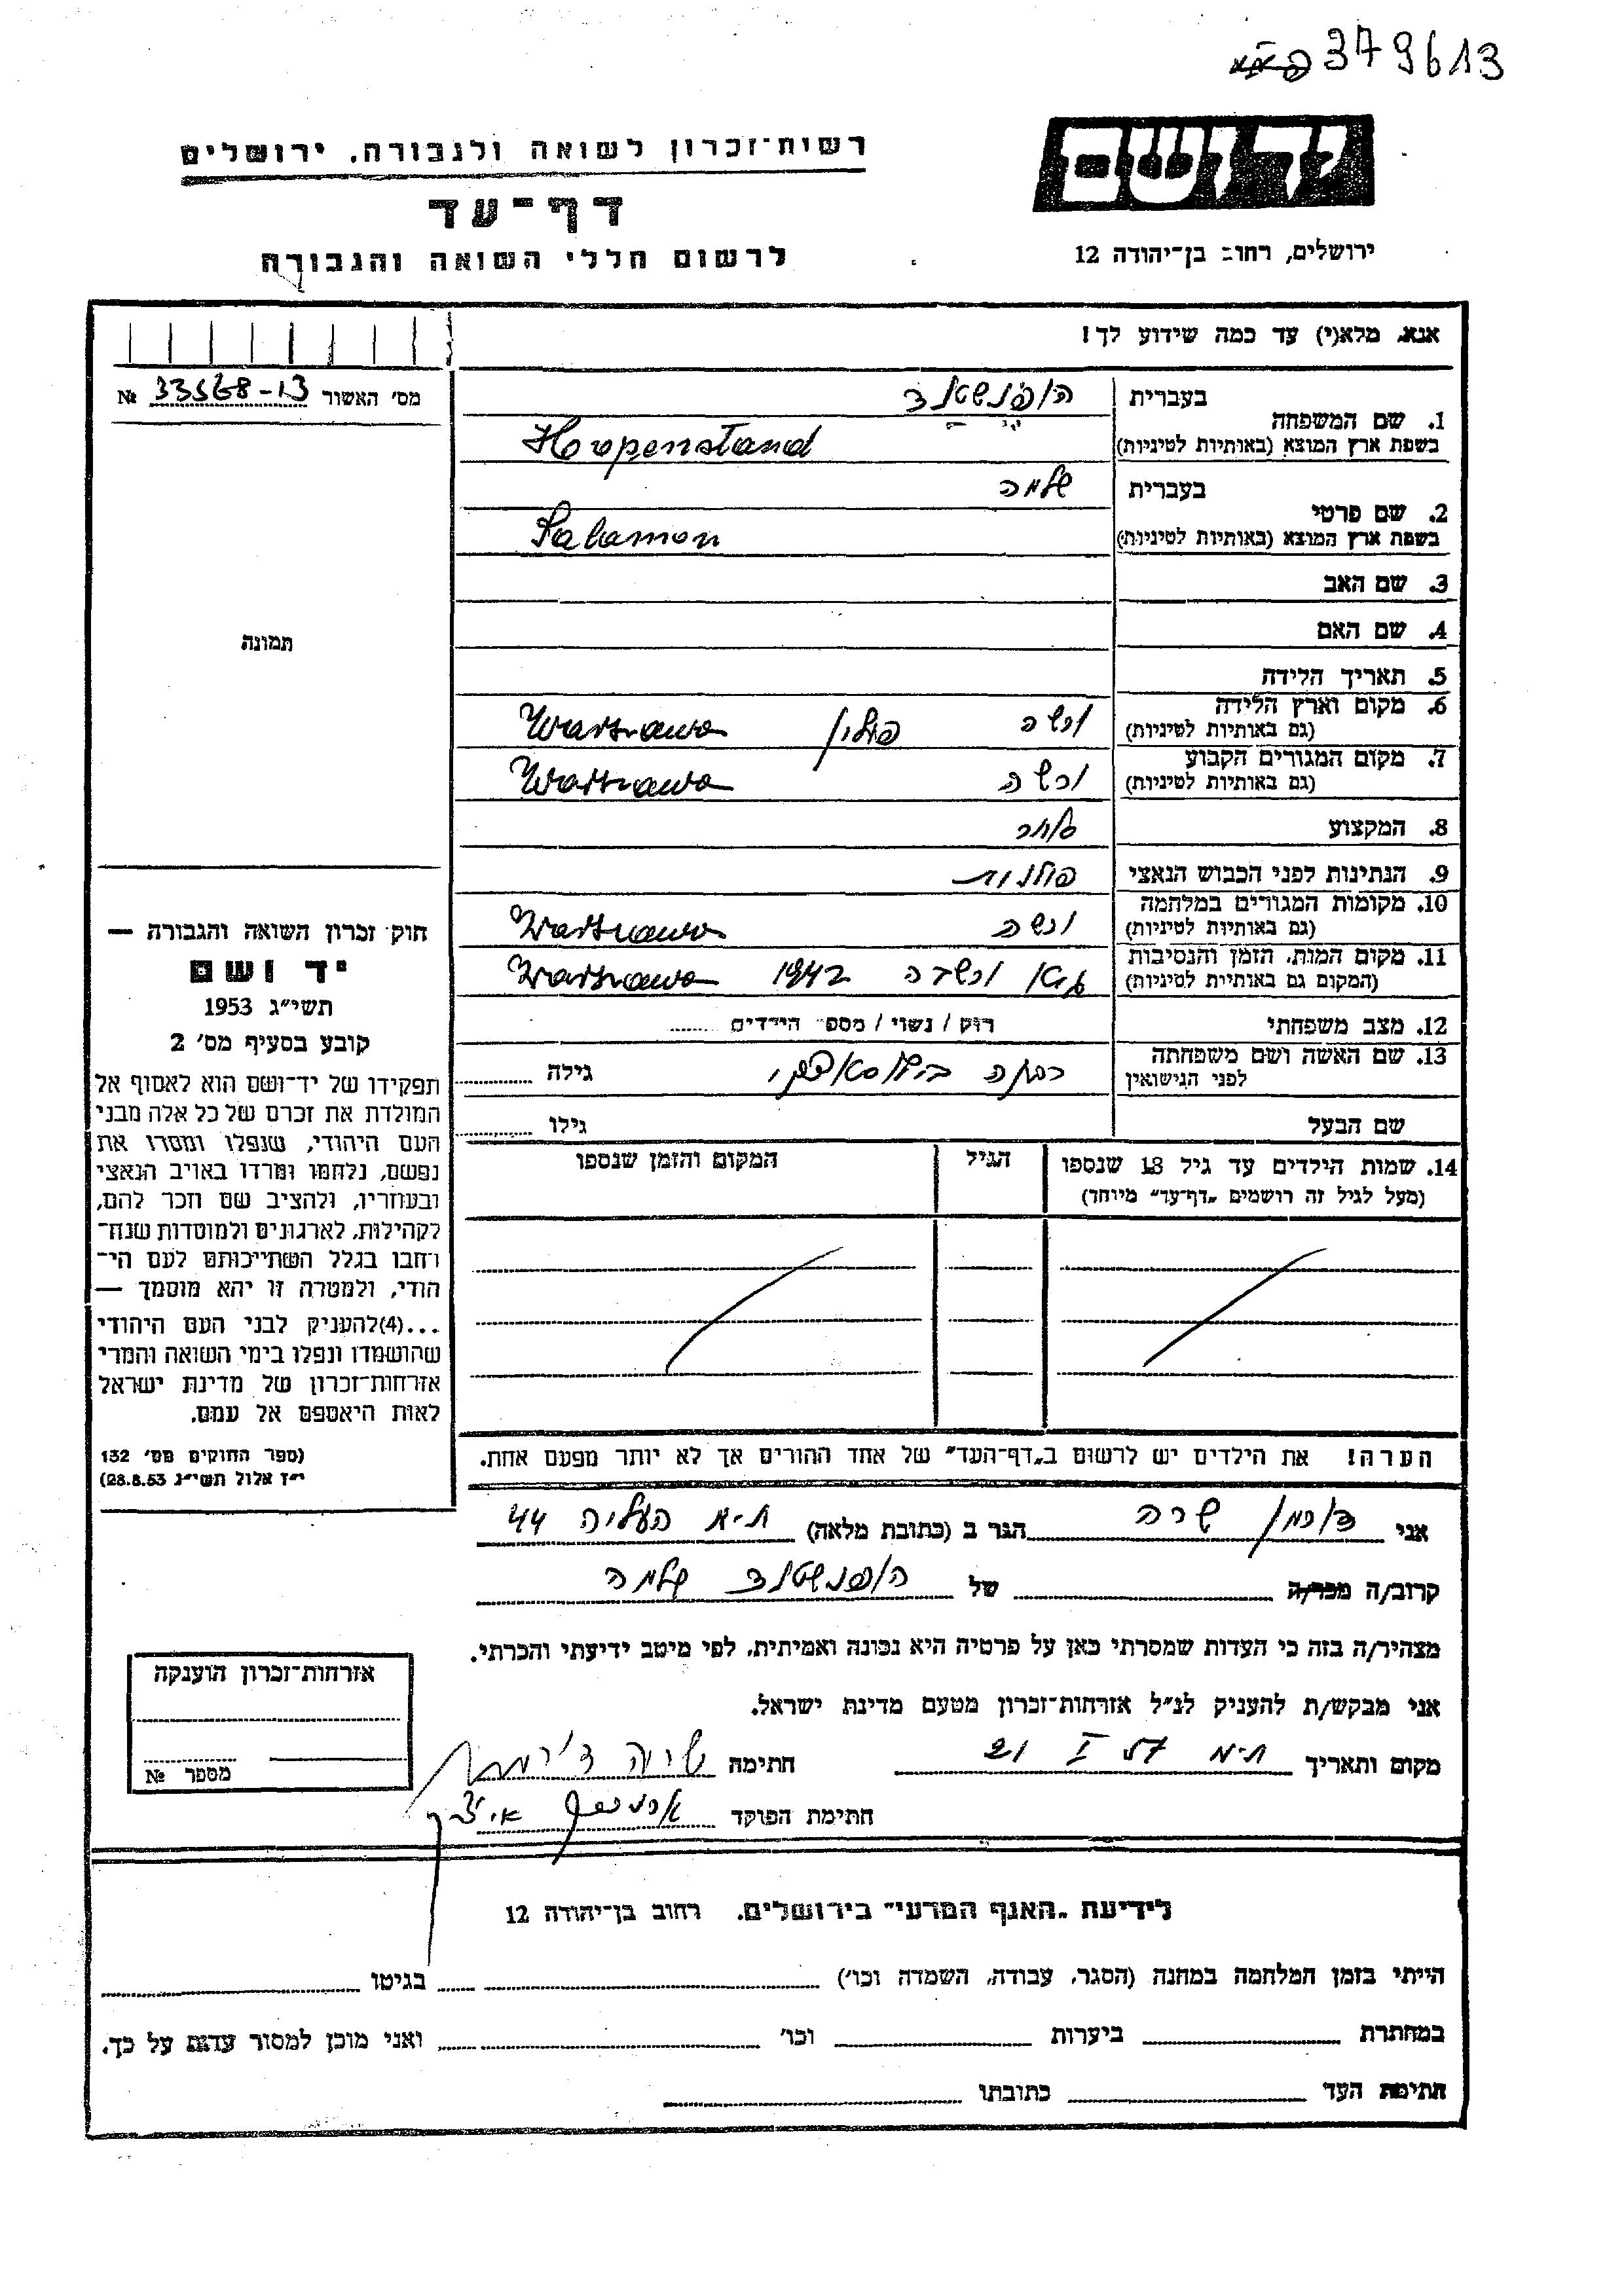 379613
רשות-זכרון לשואה ולגבורה. ירושלים
יד ושם
דף-עד
לרשום חללי השואה והגבורה
ירושלים, רחוב בן-יהודה 12
אנא, מלא(י) עד כמה שידוע לך!
מס' האשור № 33568-13
בעברית הופנשטנד
1. שם המשפחה
בשפת ארץ המוצא (באותיות לטיניות) Hoopenstand
בעברית שלמה
2. שם פרטי
בשפת ארץ המוצא (באותיות לטיניות) Salamon
3. שם האב
4. שם האם
תמונה
5. תאריך הלידה
6. מקום וארץ הלידה ורשה פולין Warszawa
(גם באותיות לטיניות)
7. מקום המגורים הקבוע ורשה Warszawa
(גם באותיות לטיניות)
8. המקצוע סוחר
9. הנתינות לפני הכבוש הנאצי פולנית
10. מקומות המגורים במלחמה ורשה Warszawa
(גם באותיות לטיניות)
11. מקום המות, הזמן והנסיבות גיטו ורשה 1942 Warszawa
(המקום גם באותיות לטיניות)
12. מצב משפחתי רוק / נשוי / מספר הילדים
13. שם האשה ושם משפחתה
לפני הנישואין
גילה
שם הבעל גילו
14. שמות הילדים עד גיל 18 שנספו הגיל המקום והזמן שנספו
(מעל לגיל זה רושמים „דף-עד" מיוחד)
חוק זכרון השואה והגבורה —
יד ושם
תשי"ג 1953
קובע בסעיף מס' 2
תפקידו של יד-ושם הוא לאסוף אל
המולדת את זכרם של כל אלה מבני
העם היהודי, שנפלו ומסרו את
נפשם, נלחמו ומרדו באויב הנאצי
ובעוזריו, ולהציב שם וזכר להם,
לקהילות, לארגונים ולמוסדות שנח-
רבו בגלל השתייכותם לעם הי-
הודי, ולמטרה זו יהא מוסמך —
...(4)להעניק לבני העם היהודי
שהושמדו ונפלו בימי השואה והמרי
אזרחות-זכרון של מדינת ישראל
לאות היאספם אל עמם.
(ספר החוקים מס' 132
י"ז אלול תשי"ג 28.8.53)
הערה! את הילדים יש לרשום ב„דף-העד" של אחד ההורים אך לא יותר מפעם אחת.
אני שרה הגר ב (כתובת מלאה) ת-א העליה 44
קרוב/ה מכר/ה של הופנשטנד שלמה
מצהיר/ה בזה כי העדות שמסרתי כאן על פרטיה היא נכונה ואמיתית, לפי מיטב ידיעתי והכרתי.
אני מבקש/ת להעניק לנ"ל אזרחות-זכרון מטעם מדינת ישראל.
מקום ותאריך ת-א 21 I 57 חתימה שרה
חתימת הפוקד
אזרחות-זכרון הוענקה
מספר №
לידיעת „האגף המדעי" בירושלים. רחוב בן-יהודה 12
הייתי בזמן המלחמה במחנה (הסגר, עבודה, השמדה וכו') בגיטו
במחתרת ביערות וכו' ואני מוכן למסור עדות על כך.
חתימת העד כתובתו